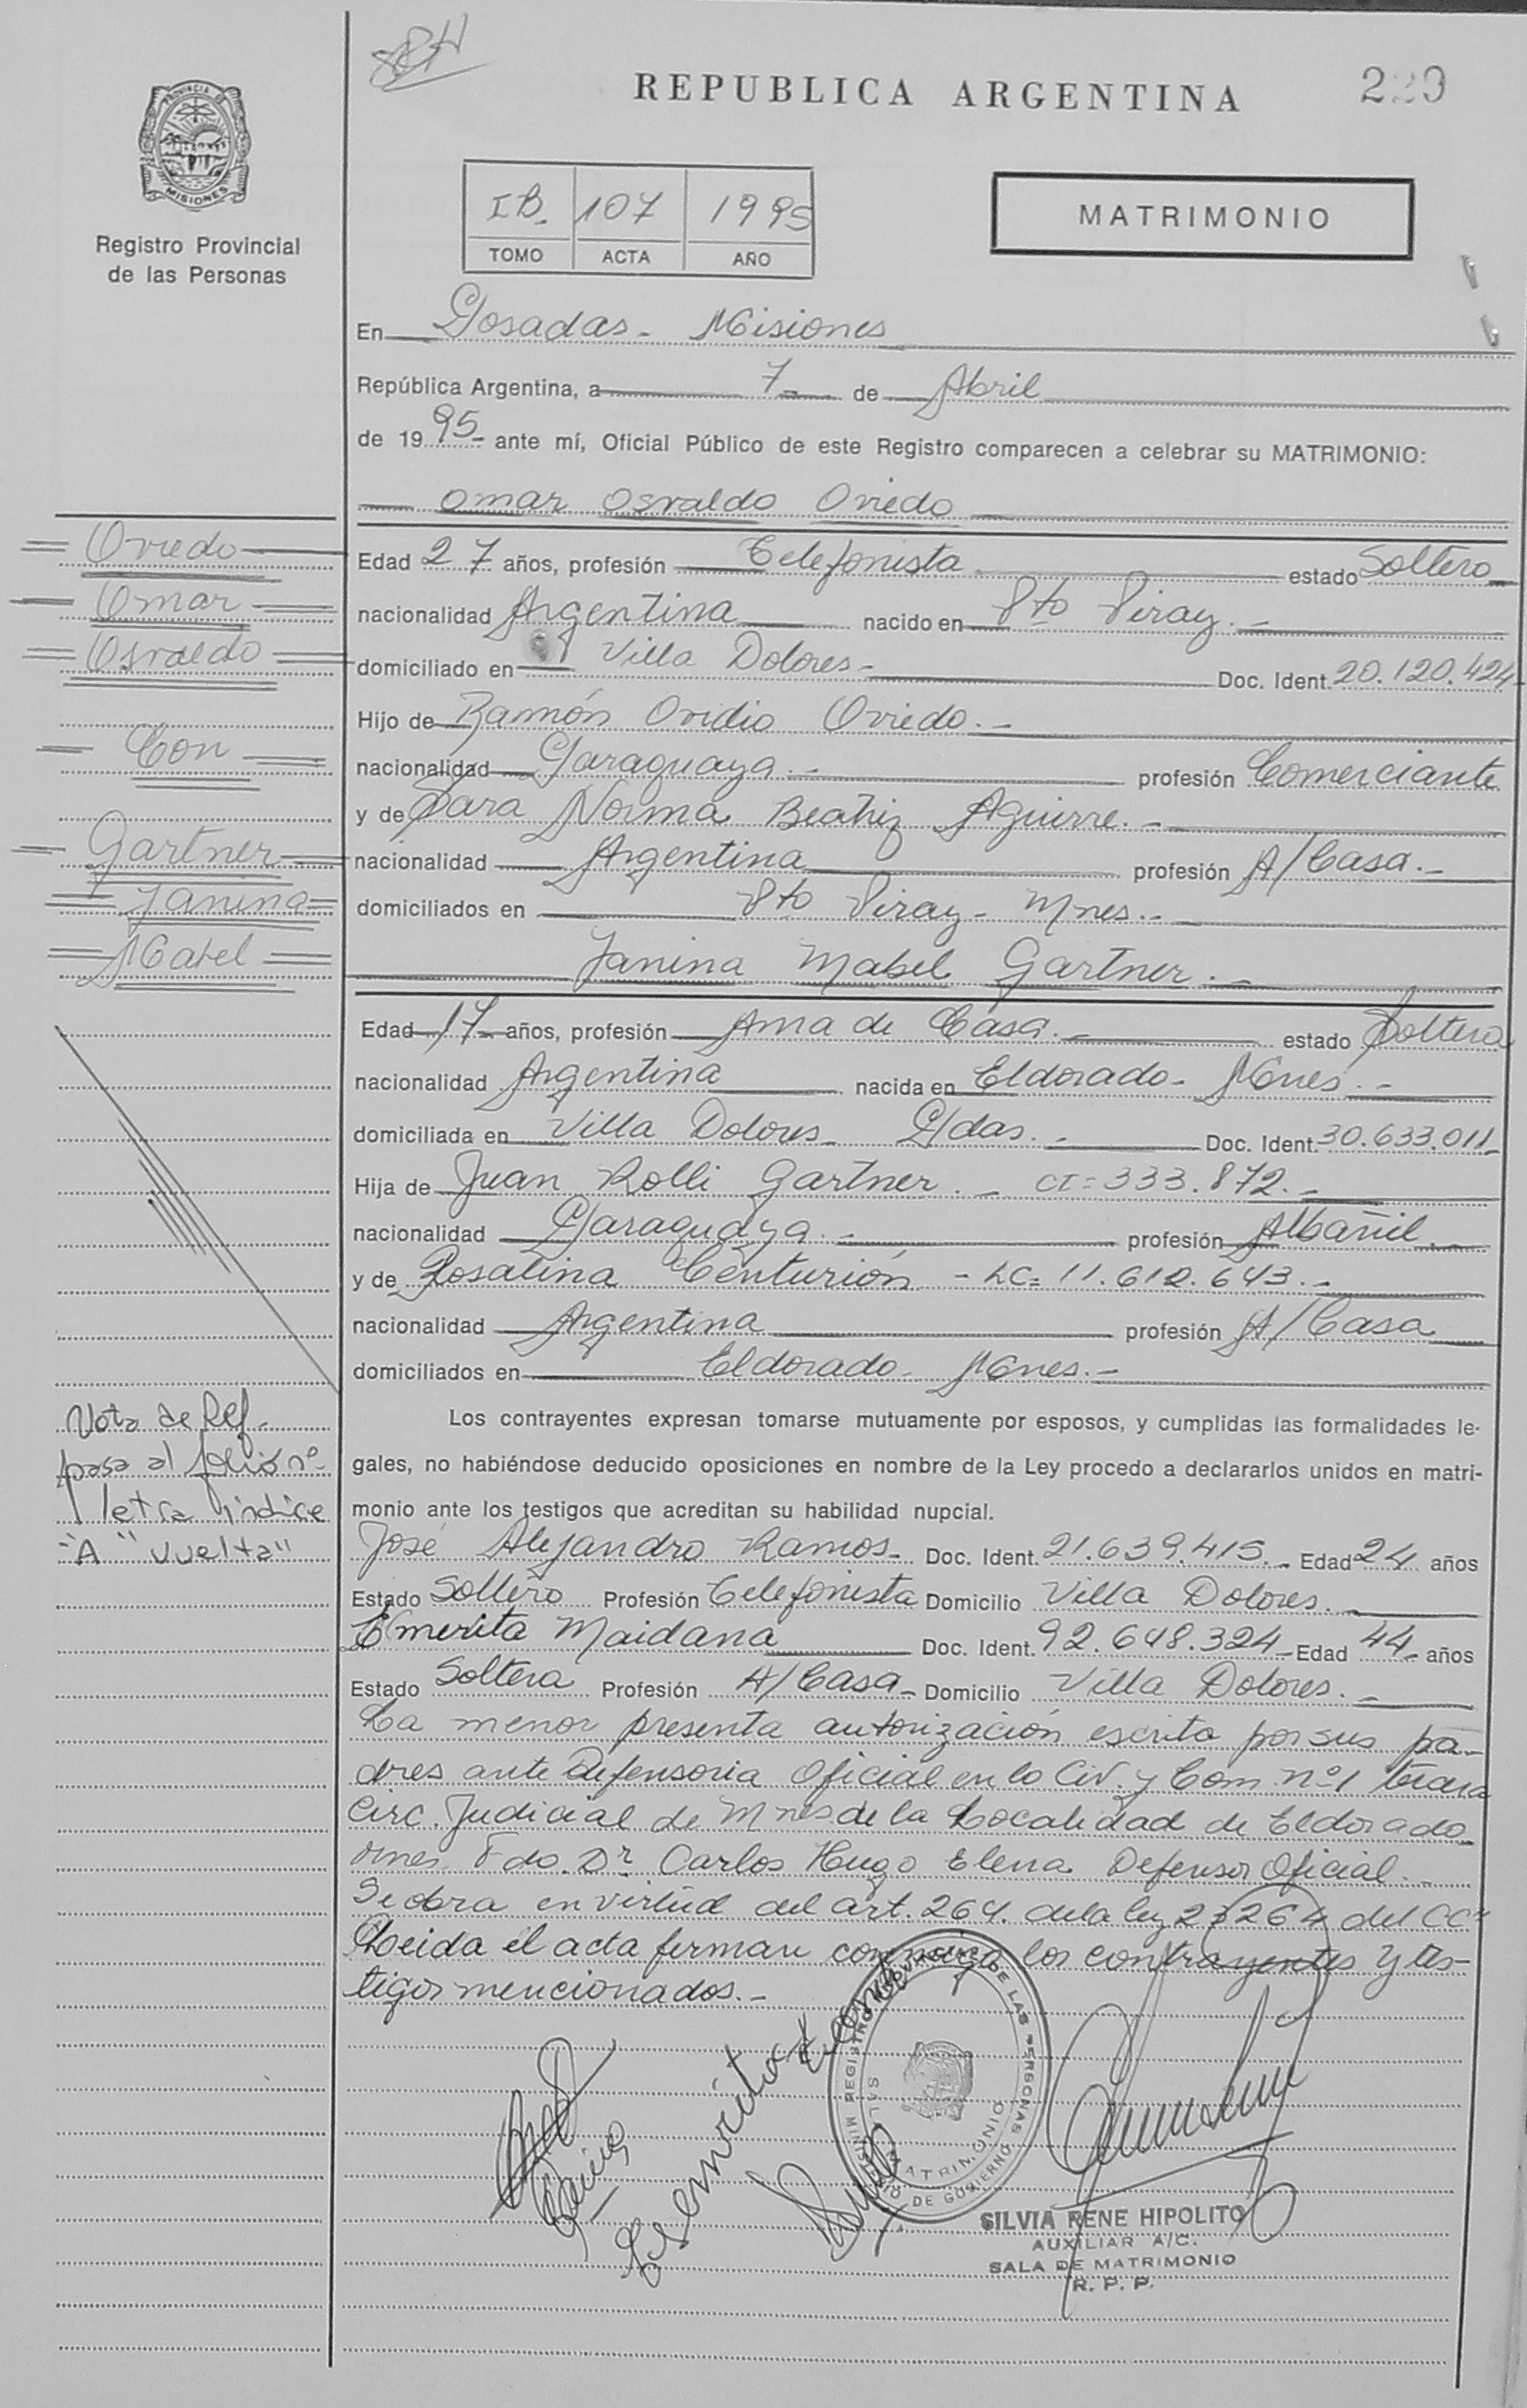 REPUBLICA ARGENTINA
229
PROVINCIA DE
MISIONES
Registro Provincial
de las Personas
IB. 107 1995
TOMO ACTA AÑO
MATRIMONIO
En Posadas - Misiones
República Argentina, a 7 de Abril
de 1995 ante mí, Oficial Público de este Registro comparecen a celebrar su MATRIMONIO:
Omar Osvaldo Oviedo
Edad 27 años, profesión Telefonista estado Soltero
nacionalidad Argentina nacido en Pto Piray.-
domiciliado en Villa Dolores- Doc. Ident. 20.120.424-
Hijo de Ramón Ovidio Oviedo.-
nacionalidad Paraguaya.- profesión Comerciante
y de Sara Norma Beatriz Aguirre.-
nacionalidad Argentina profesión A/Casa.-
domiciliados en Pto Piray - Mnes.-
Janina Mabel Gartner.-
Edad 17 años, profesión Ama de Casa.- estado Soltera
nacionalidad Argentina nacida en Eldorado- Mnes.-
domiciliada en Villa Dolores- P/das.- Doc. Ident. 30.633.011-
Hija de Juan Rolli Gartner.- CI=333.872.-
nacionalidad Paraguaya.- profesión Albañil.-
y de Rosalina Centurión - LC= 11.612.643.-
nacionalidad Argentina profesión A/Casa
domiciliados en Eldorado- Mnes.-
Los contrayentes expresan tomarse mutuamente por esposos, y cumplidas las formalidades le-
gales, no habiéndose deducido oposiciones en nombre de la Ley procedo a declararlos unidos en matri-
monio ante los testigos que acreditan su habilidad nupcial.
José Alejandro Ramos- Doc. Ident. 21.639.415.- Edad 24 años
Estado Soltero Profesión Telefonista Domicilio Villa Dolores.-
Emerita Maidana Doc. Ident. 92.648.324- Edad 44- años
Estado Soltera Profesión A/Casa- Domicilio Villa Dolores.-
La menor presenta autorización escrita por sus pa-
dres ante Defensoria Oficial en lo Civ. y Com nº1 tercera
Circ. Judicial de Mnes de la Localidad de Eldorado
Mnes. Fdo. Dr Carlos Hugo Elena Defensor Oficial.-
Se obra en virtud del art. 264. de la ley 23264 del CCn
Leida el acta firman conmigo los contrayentes y tes-
tigos mencionados.-
Oviedo
Omar
Osvaldo
Con
Gartner
Janina
Mabel
Nota de Ref.
pasa al folio nº
1 letra indice
"A" vuelta"
MINISTERIO DE GOBIERNO
REGISTRO PROVINCIAL DE LAS PERSONAS
SALA MATRIMONIO
SILVIA RENE HIPOLITO
AUXILIAR A/C.
SALA DE MATRIMONIO
R. P. P.